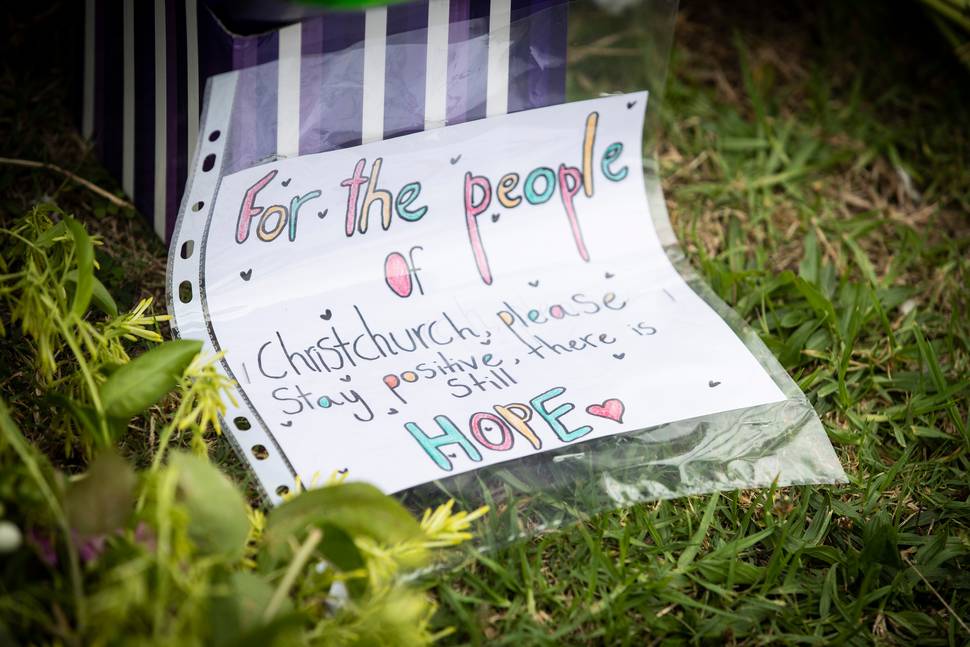 For the people
of
Christchurch, please
stay positive, there is
still
HOPE